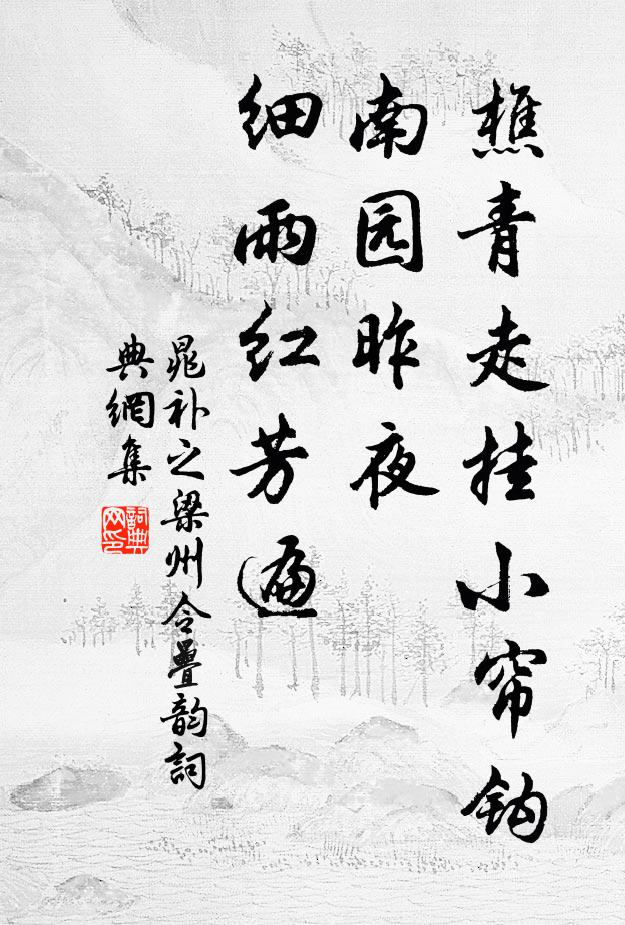 樵青走挂小帘钩
南园昨夜
细雨红芳遍
晁补之梁州令叠韵詞
典網集
詞典網印